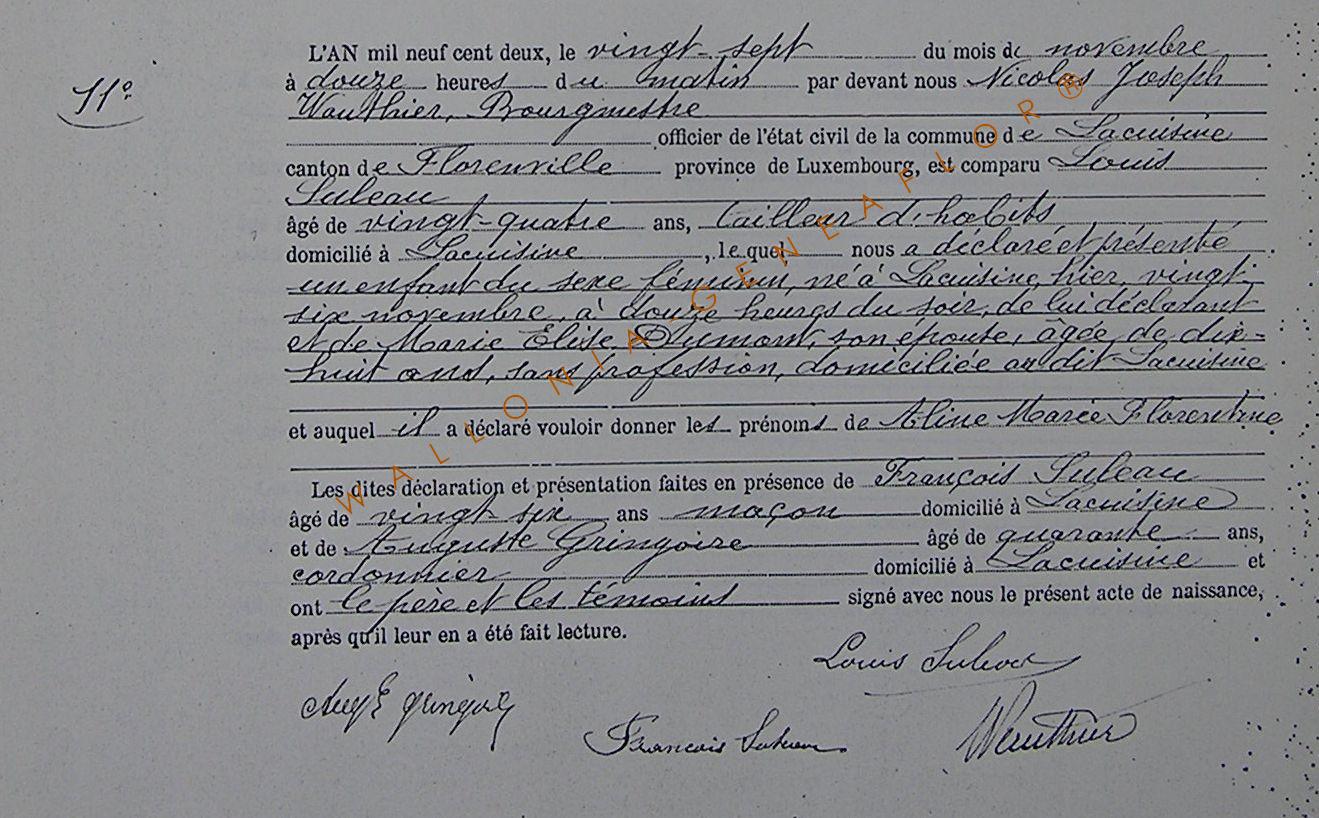 11°
L'AN mil neuf cent deux, le vingt-sept du mois de novembre
à douze heures du matin par devant nous Nicolas Joseph
Wauthier, Bourgmestre
officier de l'état civil de la commune de Lacuisine
canton de Florenville province de Luxembourg, est comparu Louis
Suleau
âgé de vingt-quatre ans, tailleur d'habits
domicilié à Lacuisine, lequel nous a déclaré et présenté
un enfant du sexe féminin, né à Lacuisine, hier, vingt-
six novembre, à douze heures du soir, de lui déclarant
et de Marie Elise Dumont, son épouse, âgée de dix-
huit ans, sans profession, domiciliée au dit Lacuisine
et auquel il a déclaré vouloir donner les prénoms de Aline Marie Florentine
Les dites déclaration et présentation faites en présence de François Suleau
âgé de vingt-six ans maçon domicilié à Lacuisine
et de Auguste Gringoire âgé de quarante ans,
cordonnier domicilié à Lacuisine et
ont le père et les témoins signé avec nous le présent acte de naissance,
après qu'il leur en a été fait lecture.
Louis Suleau
Augte Gringoire
François Suleau
Wauthier
WALLONIA GENEAFLOR®